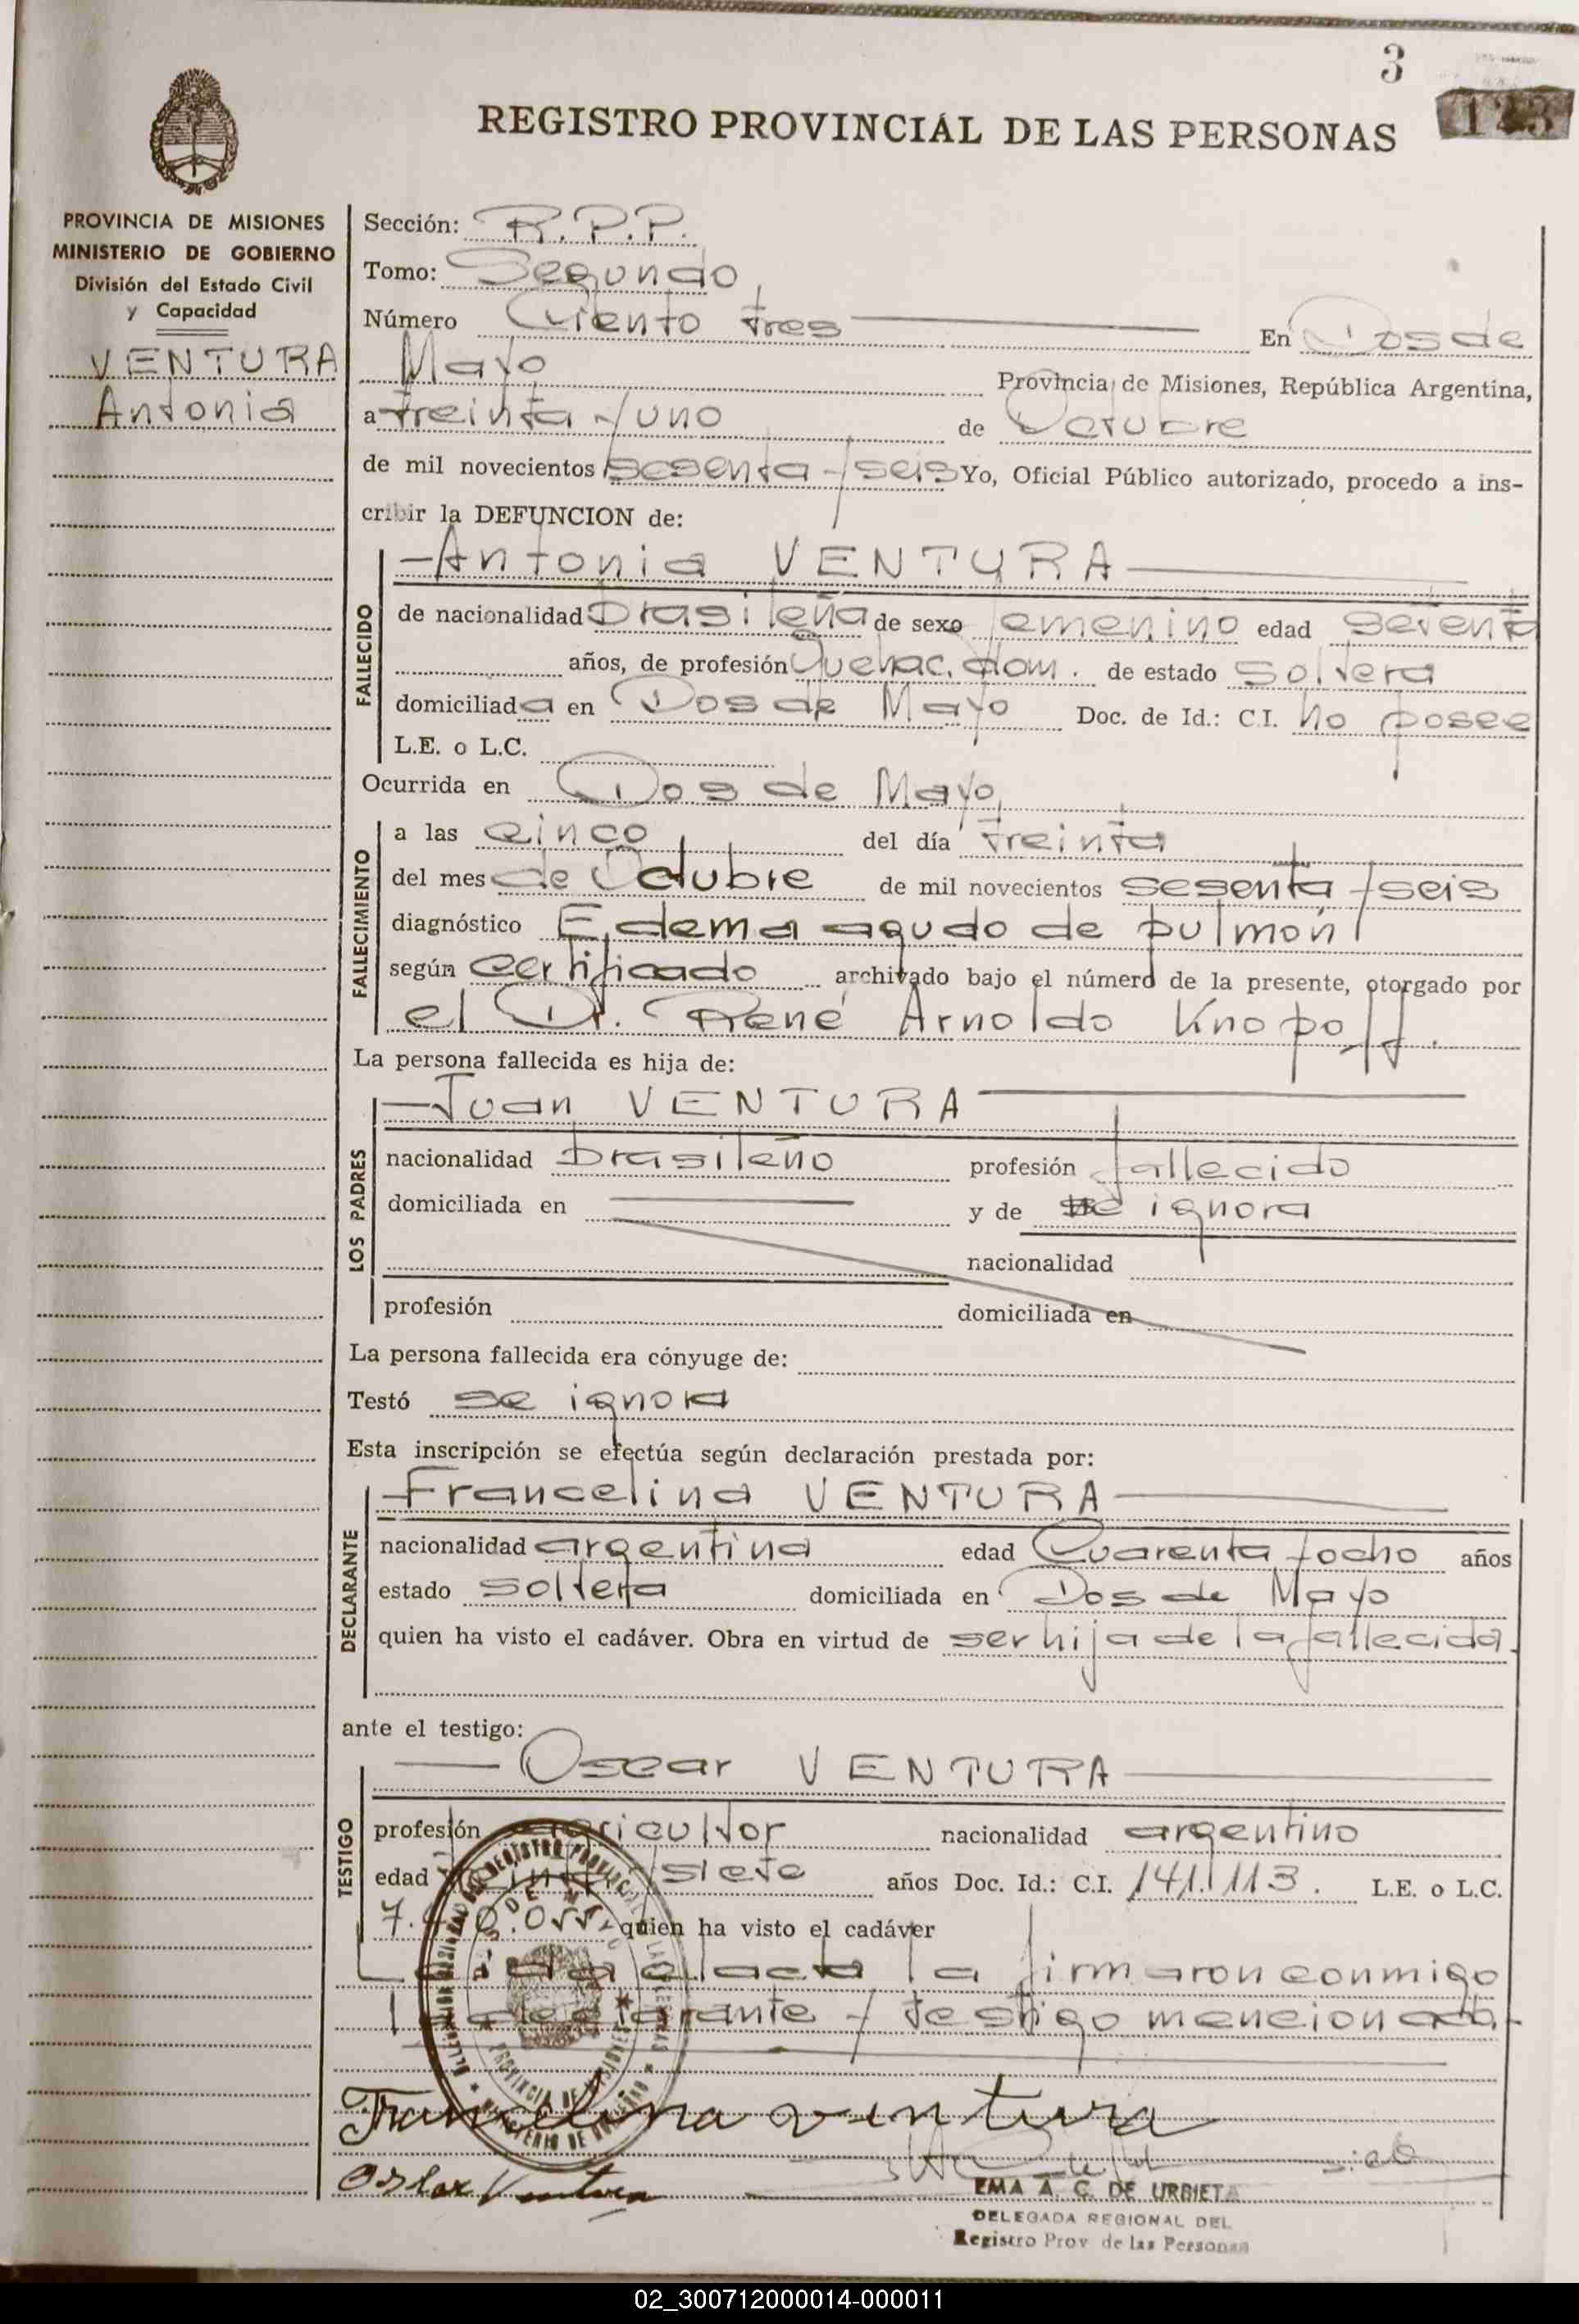 3
REGISTRO PROVINCIAL DE LAS PERSONAS
PROVINCIA DE MISIONES
MINISTERIO DE GOBIERNO
División del Estado Civil
y Capacidad
VENTURA
Antonia
Sección: R.P.P.
Tomo: Segundo
Número Ciento tres En Dos de
Mayo Provincia de Misiones, República Argentina,
a treinta y uno de Octubre
de mil novecientos sesenta y seis Yo, Oficial Público autorizado, procedo a ins-
cribir la DEFUNCION de:
Antonia VENTURA
FALLECIDO
de nacionalidad brasileña de sexo femenino edad setenta
años, de profesión Quehac. dom. de estado soltera
domiciliada en Dos de Mayo Doc. de Id.: C.I. no posee
L.E. o L.C.
Ocurrida en Dos de Mayo,
FALLECIMIENTO
a las cinco del día treinta
del mes de Octubre de mil novecientos sesenta y seis
diagnóstico Edema agudo de pulmón
según certificado archivado bajo el número de la presente, otorgado por
el Dr. René Arnoldo Knopoff.
La persona fallecida es hija de:
Juan VENTURA
LOS PADRES
nacionalidad brasileño profesión fallecido
domiciliada en y de se ignora
nacionalidad
profesión domiciliada en
La persona fallecida era cónyuge de:
Testó se ignora
Esta inscripción se efectúa según declaración prestada por:
Francelina VENTURA
DECLARANTE
nacionalidad argentina edad Cuarenta y ocho años
estado soltera domiciliada en Dos de Mayo
quien ha visto el cadáver. Obra en virtud de ser hija de la fallecida.
ante el testigo:
Oscar VENTURA
TESTIGO
profesión agricultor nacionalidad argentino
edad siete años Doc. Id.: C.I. 141.113. L.E. o L.C.
quien ha visto el cadáver
el acta la firmaron conmigo
declarante y testigo mencionada.
Francelina ventura
Oskar Ventura
EMA A. C. DE URBIETA
DELEGADA REGIONAL DEL
Registro Prov de las Personas
02_300712000014-000011